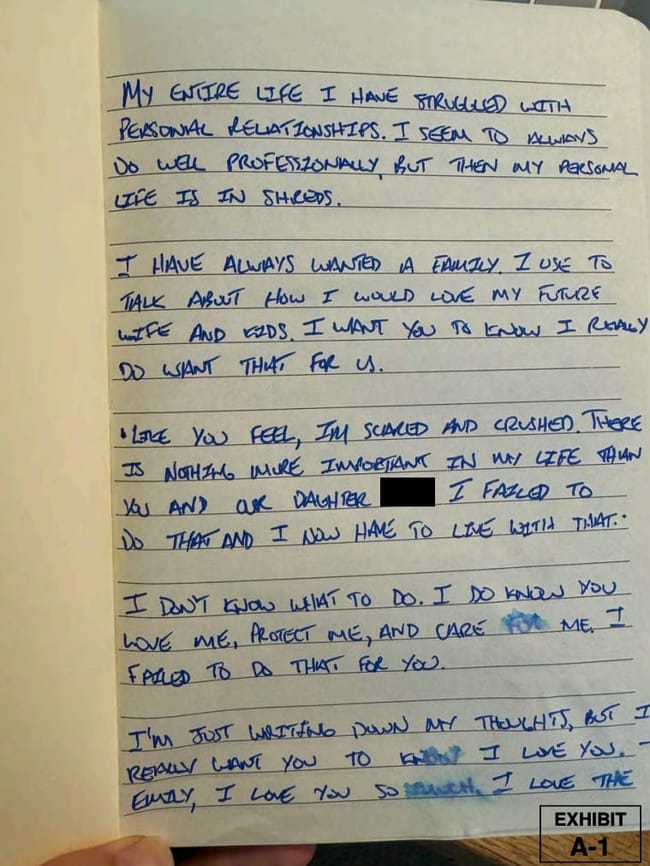 MY ENTIRE LIFE I HAVE STRUGGLED WITH
PERSONAL RELATIONSHIPS. I SEEM TO ALWAYS
DO WELL PROFESSIONALLY, BUT THEN MY PERSONAL
LIFE IS IN SHREDS.
I HAVE ALWAYS WANTED A FAMILY. I USE TO
TALK ABOUT HOW I WOULD LOVE MY FUTURE
WIFE AND KIDS. I WANT YOU TO KNOW I REALLY
DO WANT THAT FOR US.
LIKE YOU FEEL, IM SCARED AND CRUSHED. THERE
IS NOTHING MORE IMPORTANT IN MY LIFE THAN
YOU AND OUR DAUGHTER I FAILED TO
DO THAT AND I NOW HAVE TO LIVE WITH THAT.
I DON'T KNOW WHAT TO DO. I DO KNOW YOU
LOVE ME, PROTECT ME, AND CARE FOR ME. I
FAILED TO DO THAT FOR YOU.
I'M JUST WRITING DOWN MY THOUGHTS, BUT I
REALLY WANT YOU TO KNOW I LOVE YOU.
EMILY, I LOVE YOU SO MUCH. I LOVE THE
EXHIBIT
A-1